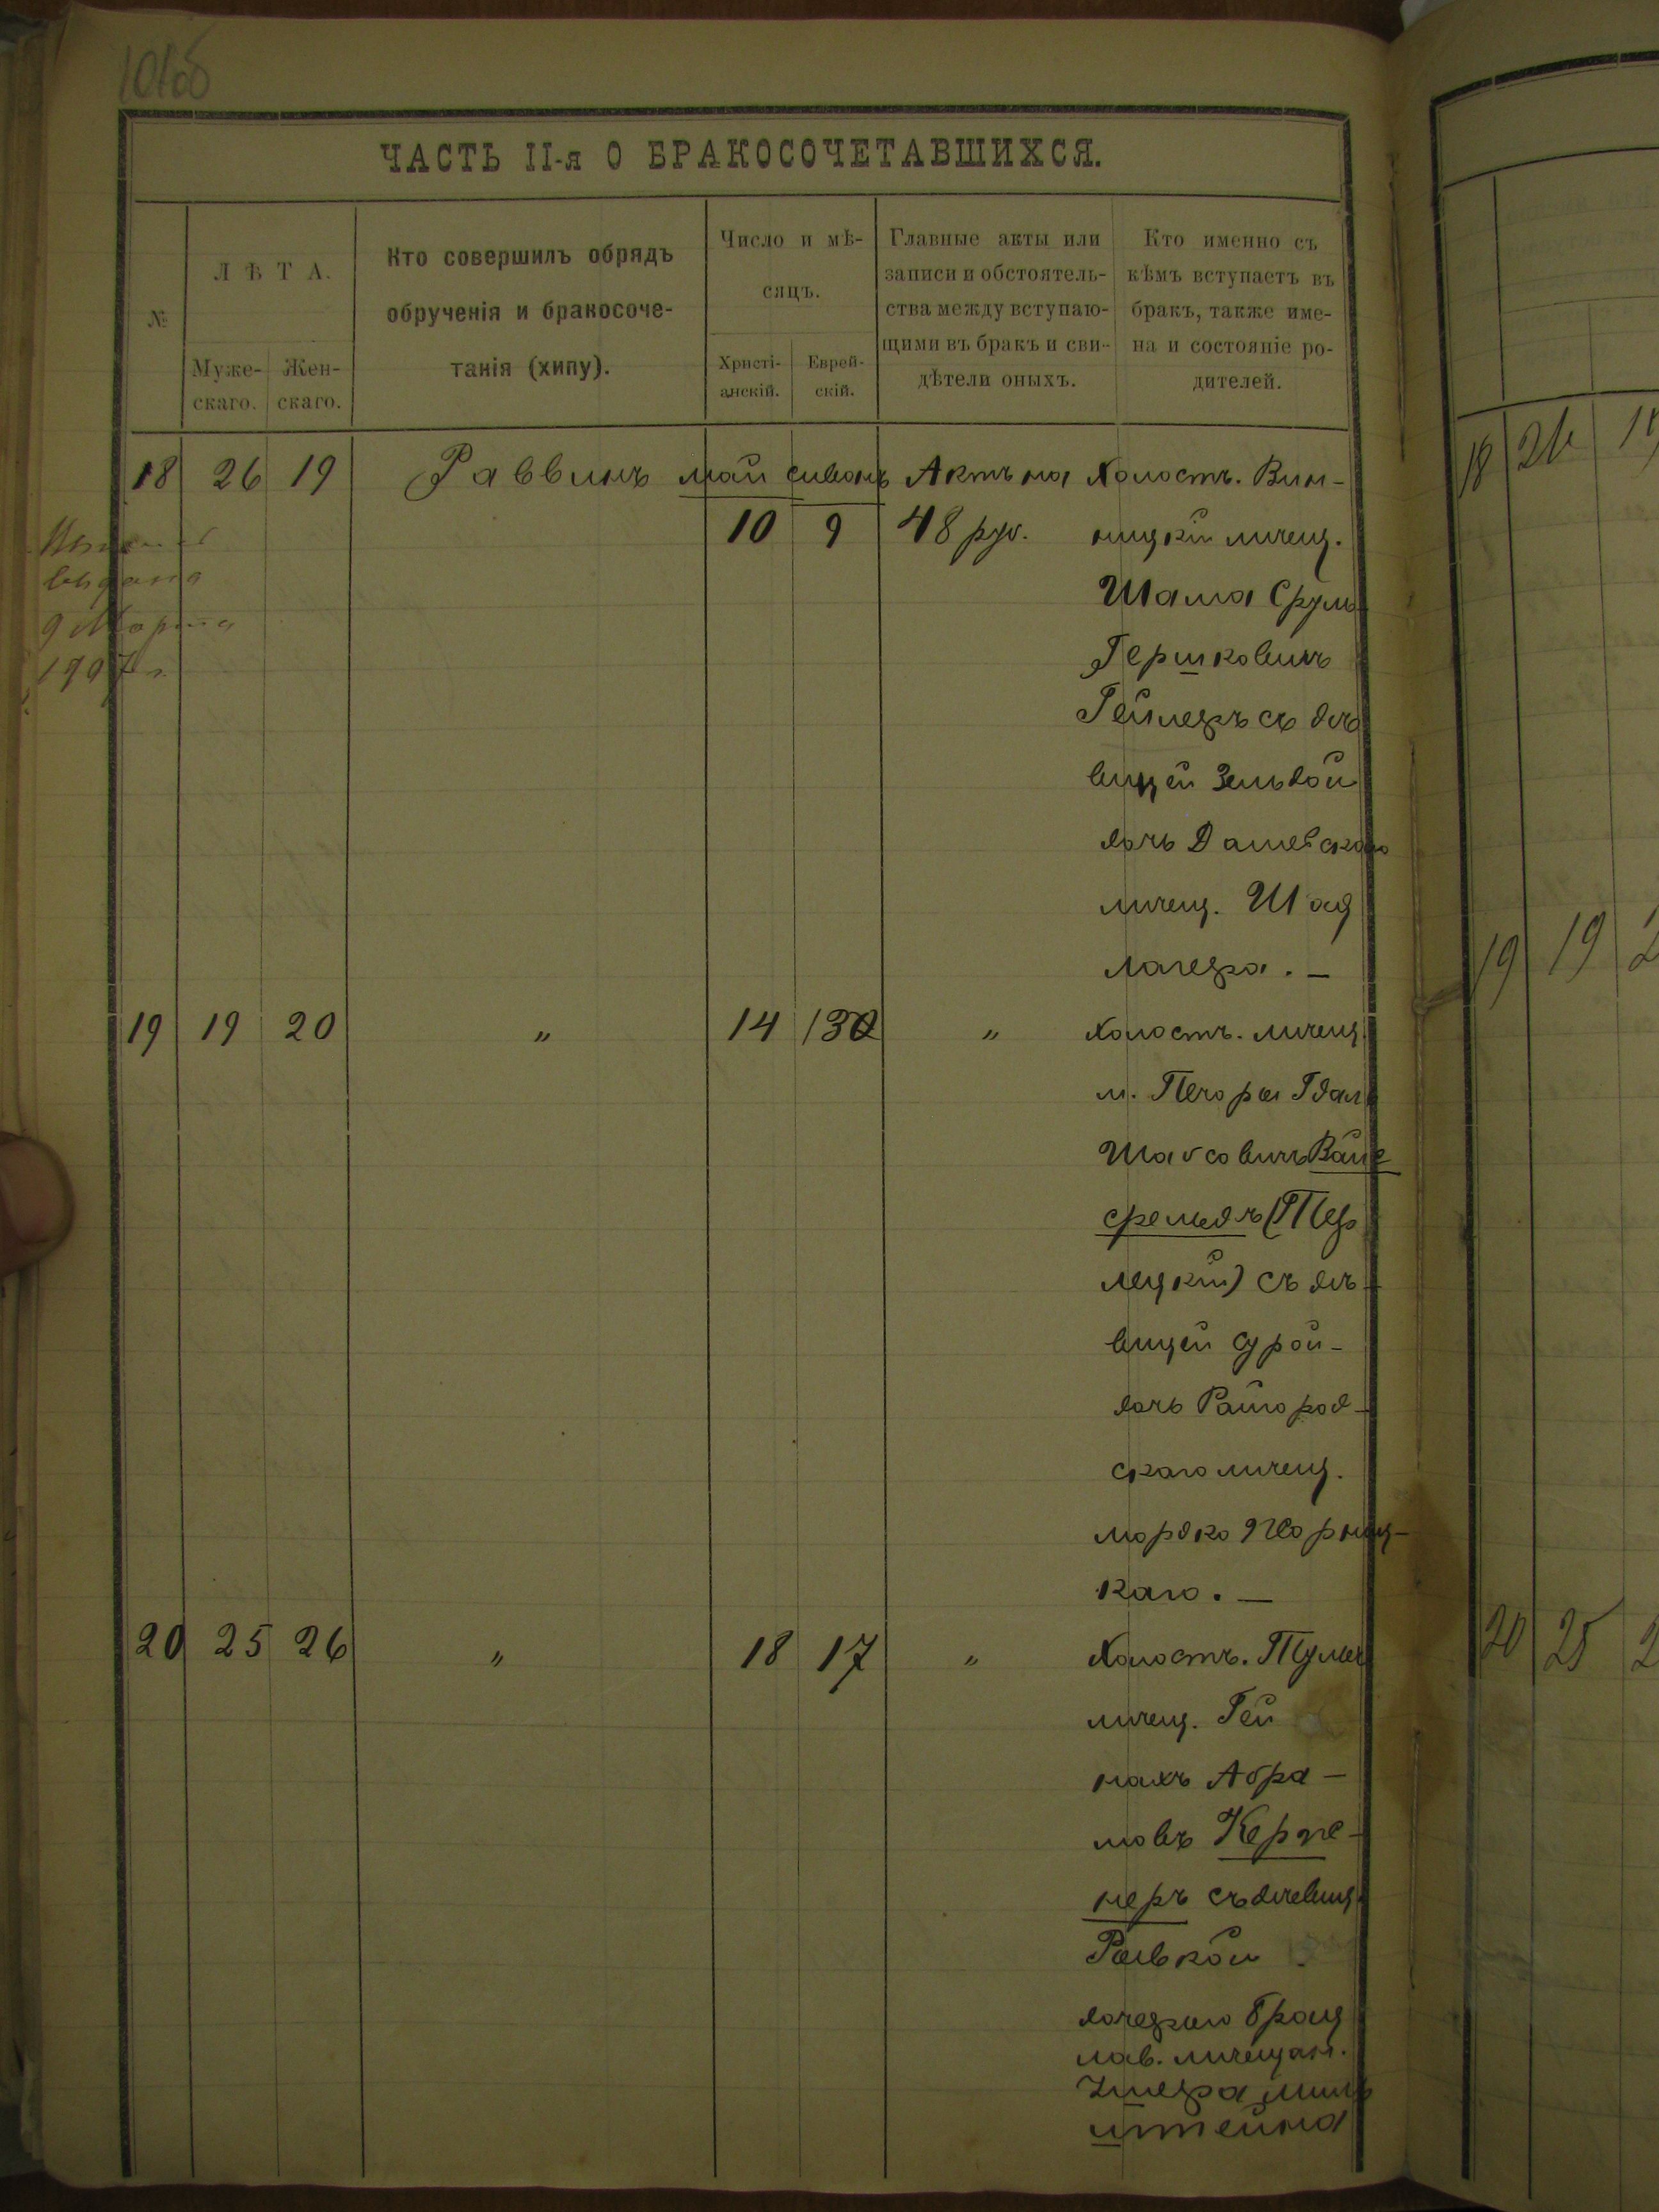 101об
ЧАСТЬ II-я О БРАКОСОЧЕТАВШИХСЯ.
№
ЛѢТА.
Муже-
скаго.
Жен-
скаго.
Кто совершилъ обрядъ
обрученія и бракосоче-
танія (хипу).
Число и мѣ-
сяцъ.
Христі-
анскій.
Еврей-
скій.
Главные акты или
записи и обстоятель-
ства между вступаю-
щими въ бракъ и сви-
дѣтели оныхъ.
Кто именно съ
кѣмъ вступаетъ въ
бракъ, также име-
на и состояніе ро-
дителей.
18 26 19 Раввинъ май сиванъ Актъ на Холостъ. Вин-
10 9 48 руб. ницкій мѣщ.
Шама Сруль
Гершковичъ
Геллеръ съ дѣ
вицей Зельдой
дочь Дашевскаго
мѣщ. Шад
лагера. —
выдана
9 Марта
19 19 20 " 14 13 " Холостъ. мѣщ.
м. Печоры Гдал
Шабсовичъ Вайс
фельдъ (Тер
лецкій) съ дѣ-
вицей Сурой-
дочь Райгород-
скаго мѣщ.
мордко Чорниц-
каго. —
20 25 26 " 18 17 " Холостъ. Тульч
мѣщ. Гей
нахъ Абра-
мовъ Керже-
неръ съ дѣвиц.
Рывкой
дочерью Брац
лав. мѣщан.
штейна
18 26 19
19 19 2
20 25 2